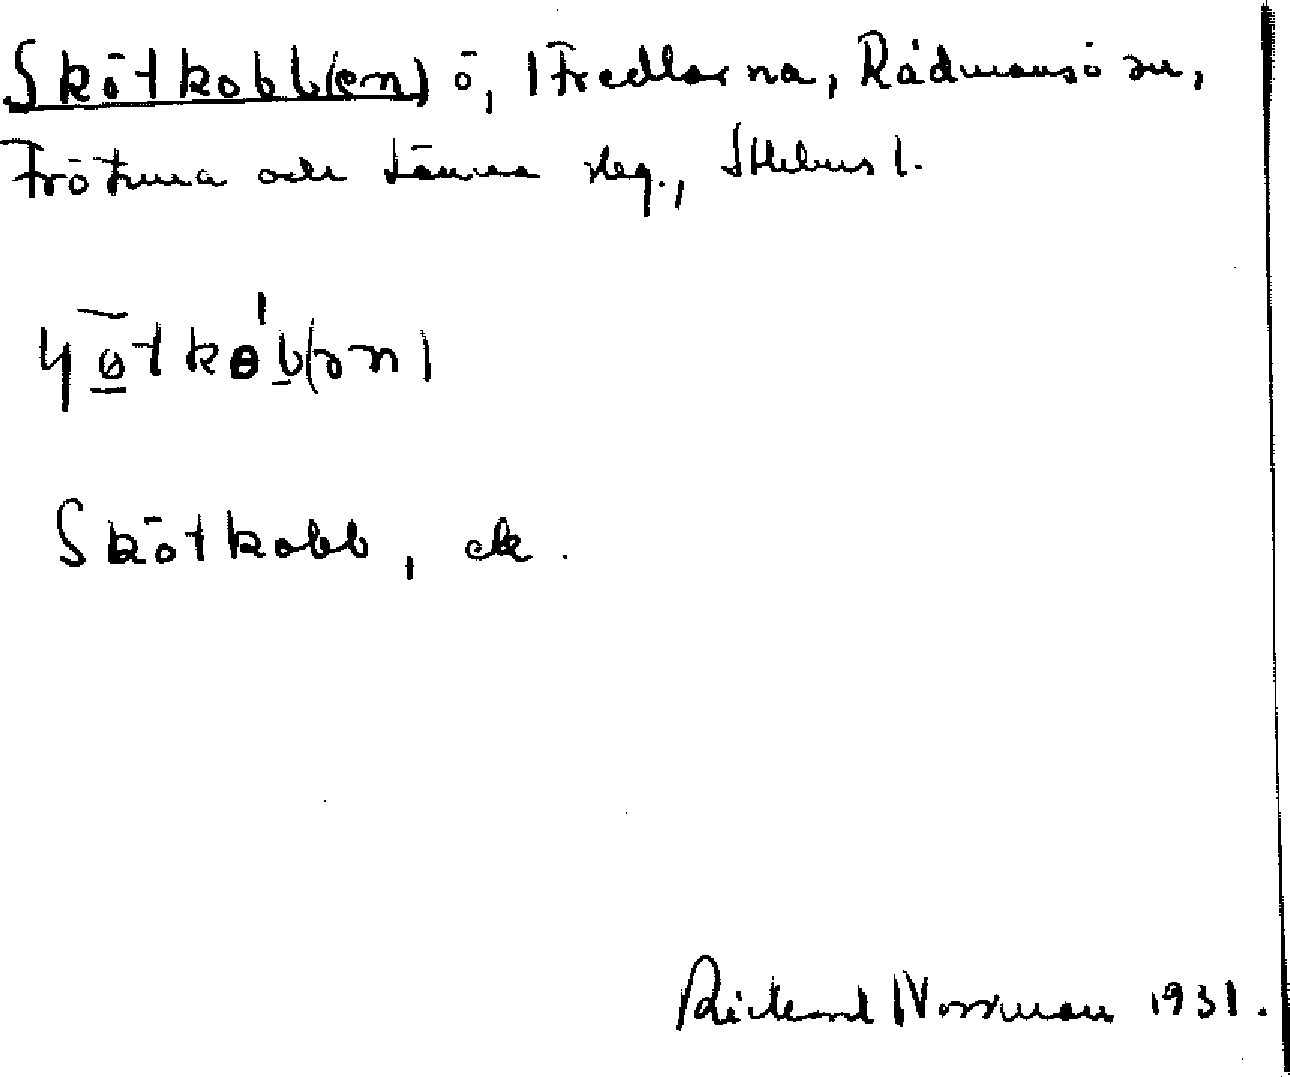 Skötkobb(en) ö, i Fredlarna, Rådmansö sn,
Frötuna och Länna skg., Sthlms l.
ɧø̱̄tkɵ́b̠(ən)
Skötkobb, ek.
Rickard Norrman 1931.